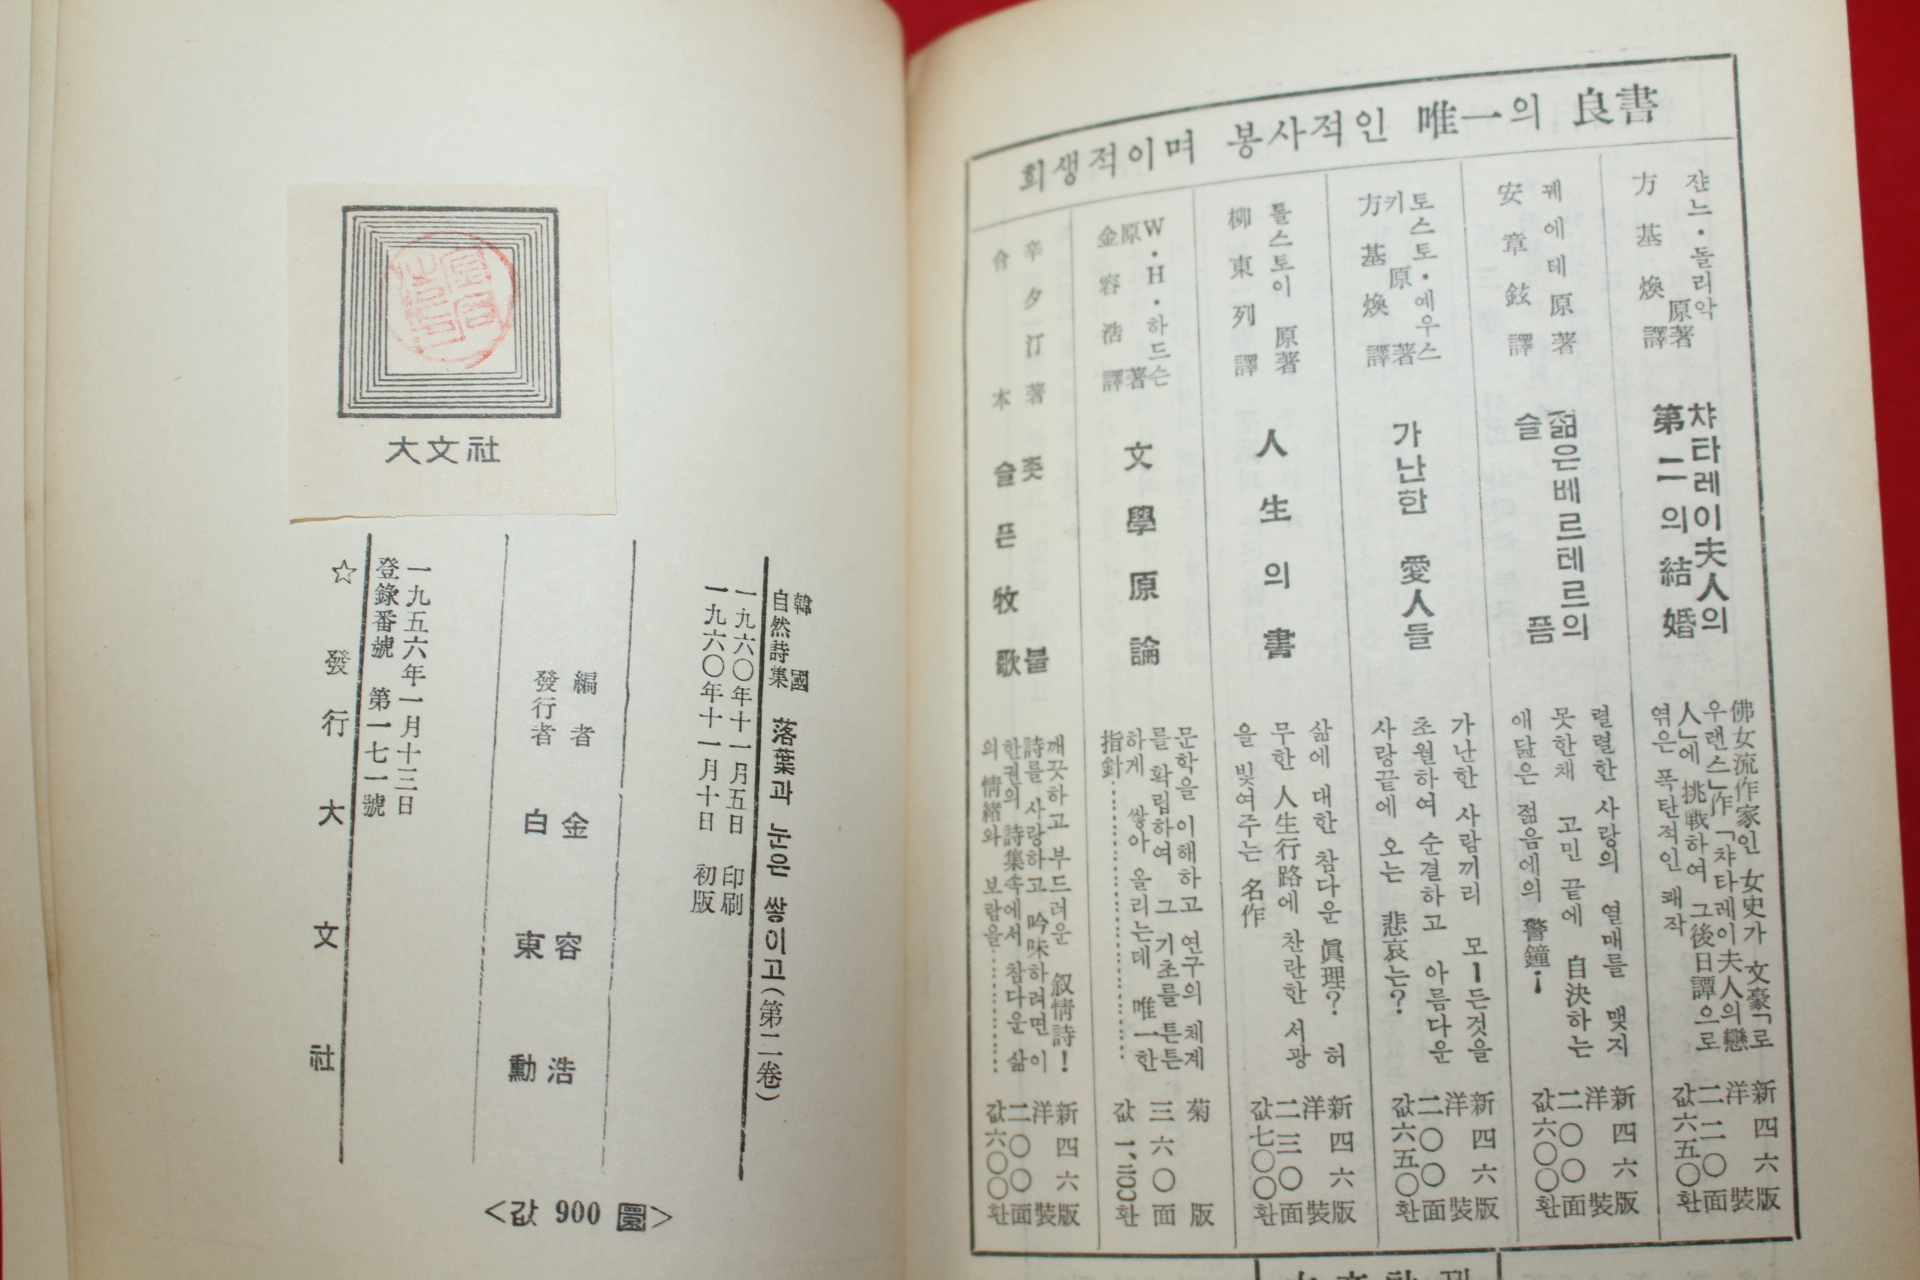 大文社
韓國
自然詩集
落葉과 눈은 쌓이고(第二卷)
一九六〇年十一月五日 印刷
一九六〇年十一月十日 初版
編者 金容浩
發行者 白東勳
一九五六年一月十三日
登錄番號 第一七一號
☆ 發行 大文社
<값 900 圜>
희생적이며 봉사적인 唯一의 良書
쟌느·돌리악 原著
方基煥 譯
챠타레이夫人의
第二의 結婚
佛女流作家인 女史가 文豪「로
우랜스」作「챠타레이夫人의 戀
人」에 挑戰하여 그後日譚으로
엮은 폭탄적인 쾌작
新四六版
洋裝
二二〇面
값六五〇환
꿰에테 原著
安章鉉 譯
젊은베르테르의
슬픔
렬렬한 사랑의 열매를 맺지
못한채 고민 끝에 自決하는
애닲은 젊음에의 警鐘!
新四六版
洋裝
二〇〇面
값六〇〇환
토스토·예우스키 原著
方基煥 譯
가난한 愛人들
가난한 사람끼리 모ー든것을
초월하여 순결하고 아름다운
사랑끝에 오는 悲哀는?
新四六版
洋裝
二〇〇面
값六五〇환
톨스토이 原著
柳東列 譯
人生의 書
삶에 대한 참다운 眞理? 허
무한 人生行路에 찬란한 서광
을 빛여주는 名作
新四六版
洋裝
二三〇面
값七〇〇환
W·H·하드슨 原著
金容浩 譯
文學原論
문학을 이해하고 연구의 체계
를 확립하여 그 기초를 튼튼
하게 쌓아 올리는데 唯一한
指針……………
菊版
三六〇面
값 一、二〇〇환
辛夕汀 著
촛불
슬픈 牧歌
깨끗하고 부드러운 叙情詩!
詩를 사랑하고 吟味하려면 이
한권의 詩集속에서 참다운 삶
의 情緒와 보람을…………
新四六版
洋裝
二〇〇面
값六〇〇환